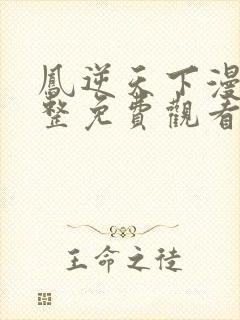 鳳逆天下漫
整免費觀看
王命之徒